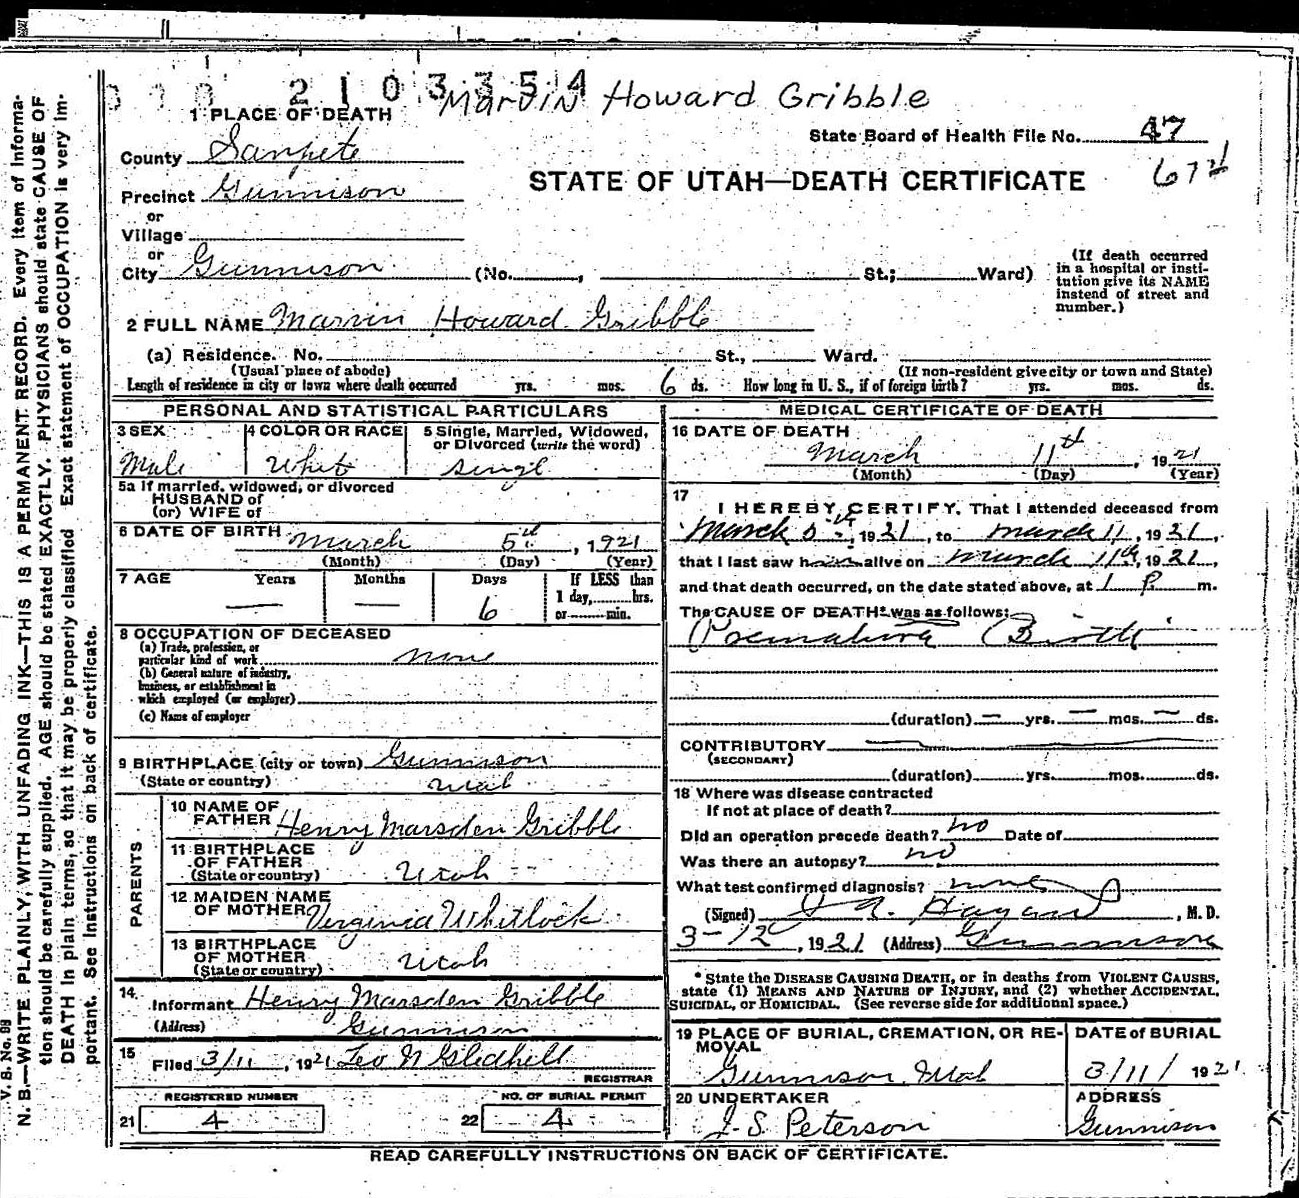 2103354
Marvin Howard Gribble
1 PLACE OF DEATH
State Board of Health File No. 47
County Sanpete
STATE OF UTAH—DEATH CERTIFICATE
Precinct Gunnison
or
Village
or
City Gunnison (No. , St.; Ward)
(If death occurred
in a hospital or insti-
tution give its NAME
instend of street and
number.)
2 FULL NAME Marvin Howard Gribble
(a) Residence. No. St., Ward.
(Usual place of abode) (If non-resident give city or town and State)
Length of residence in city or town where death occurred yrs. mos. 6 ds. How long in U. S., if of foreign birth? yrs. mos. ds.
PERSONAL AND STATISTICAL PARTICULARS
3 SEX
Male
4 COLOR OR RACE
White
5 Single, Married, Widowed,
or Divorced (write the word)
Singl
5a If married, widowed, or divorced
HUSBAND of
(or) WIFE of
6 DATE OF BIRTH March 5th, 1921
(Month) (Day) (Year)
7 AGE Years Months Days If LESS than
1 day, hrs.
or min.
— — 6
8 OCCUPATION OF DECEASED
(a) Trade, profession, or
particular kind of work none
(b) General nature of industry,
business, or establishment in
which employed (or employer)
(c) Name of employer
9 BIRTHPLACE (city or town) Gunnison
(State or country) Utah
PARENTS
10 NAME OF
FATHER Henry Marsden Gribble
11 BIRTHPLACE
OF FATHER
(State or country) Utah
12 MAIDEN NAME
OF MOTHER Virginia Whitlock
13 BIRTHPLACE
OF MOTHER
(State or country) Utah
14.
Informant Henry Marsden Gribble
(Address) Gunnison
15
Filed 3/11, 1921 Leo N Gledhill
REGISTRAR
REGISTERED NUMBER
21 4
NO. OF BURIAL PERMIT
22 4
MEDICAL CERTIFICATE OF DEATH
16 DATE OF DEATH
March 11th, 1921
(Month) (Day) (Year)
17
I HEREBY CERTIFY, That I attended deceased from
March 5th, 1921, to march 11, 1921,
that I last saw him alive on march 11th, 1921
and that death occurred, on the date stated above, at 1 P. m.
The CAUSE OF DEATH* was as follows:
Premature Birth
(duration) — yrs. — mos. — ds.
CONTRIBUTORY
(SECONDARY)
(duration) yrs. mos. ds.
18 Where was disease contracted
If not at place of death?
Did an operation precede death? no Date of
Was there an autopsy? no
What test confirmed diagnosis? none
(Signed) , M. D.
3-12, 1921 (Address) Gunnison
* State the DISEASE CAUSING DEATH, or in deaths from VIOLENT CAUSES,
state (1) MEANS AND NATURE OF INJURY, and (2) whether ACCIDENTAL,
SUICIDAL, or HOMICIDAL. (See reverse side for additional space.)
19 PLACE OF BURIAL, CREMATION, OR RE-
MOVAL
Gunnison Utah
DATE of BURIAL
3/11/ 1921.
20 UNDERTAKER
J. S. Peterson
ADDRESS
Gunnison
READ CAREFULLY INSTRUCTIONS ON BACK OF CERTIFICATE.
N. B.—WRITE PLAINLY, WITH UNFADING INK—THIS IS A PERMANENT RECORD. Every item of informa-
tion should be carefully supplied. AGE should be stated EXACTLY. PHYSICIANS should state CAUSE OF
DEATH in plain terms, so that it may be properly classified Exact statement of OCCUPATION is very im-
portant. See instructions on back of certificate.